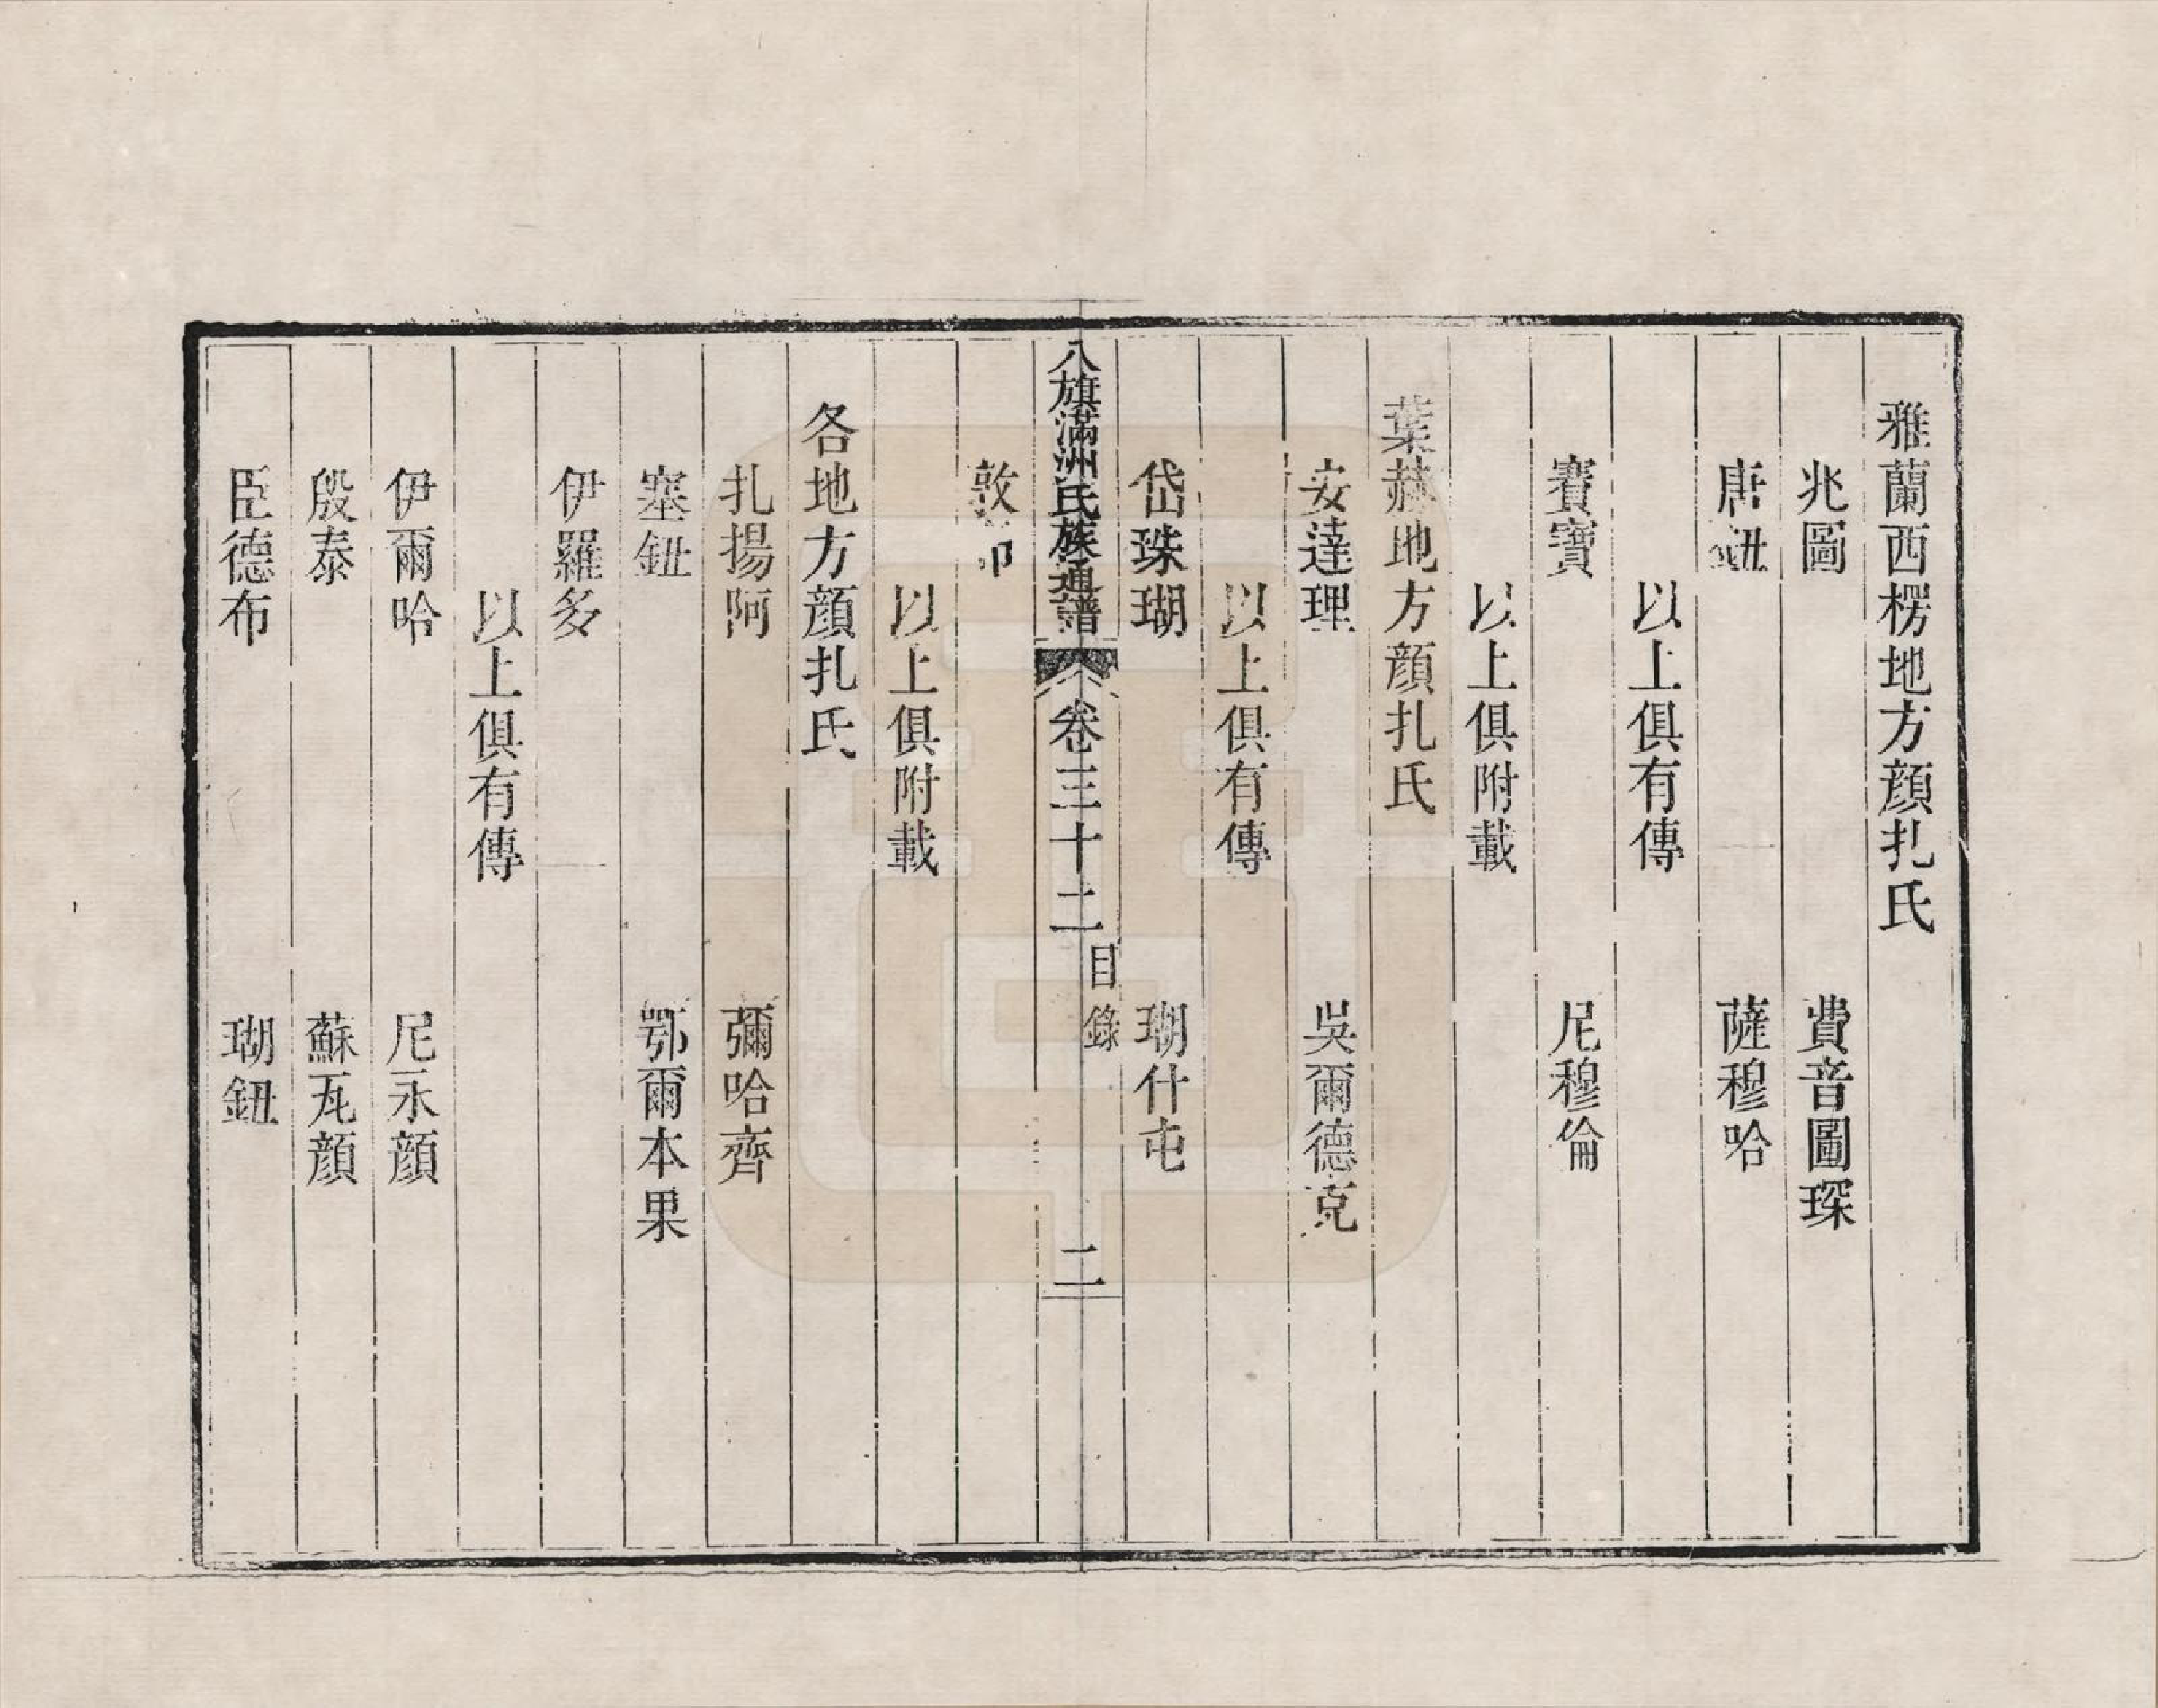 雅蘭西楞地方顔扎氏
兆圖 費音圖琛
唐鈕 薩穆哈
以上俱有傳
賽寶 尼穆倫
以上俱附載
葉赫地方顔扎氏
安達理 吳爾德克
以上俱有傳
岱珠瑚 瑚什屯
八旗滿洲氏族通譜 卷三十二 目錄 二
敦
以上俱附載
各地方顔扎氏
扎揚阿 彌哈齊
塞鈕 鄂爾本果
伊羅多
以上俱有傳
伊爾哈 尼永顔
殷泰 蘇瓦顔
臣德布 瑚鈕